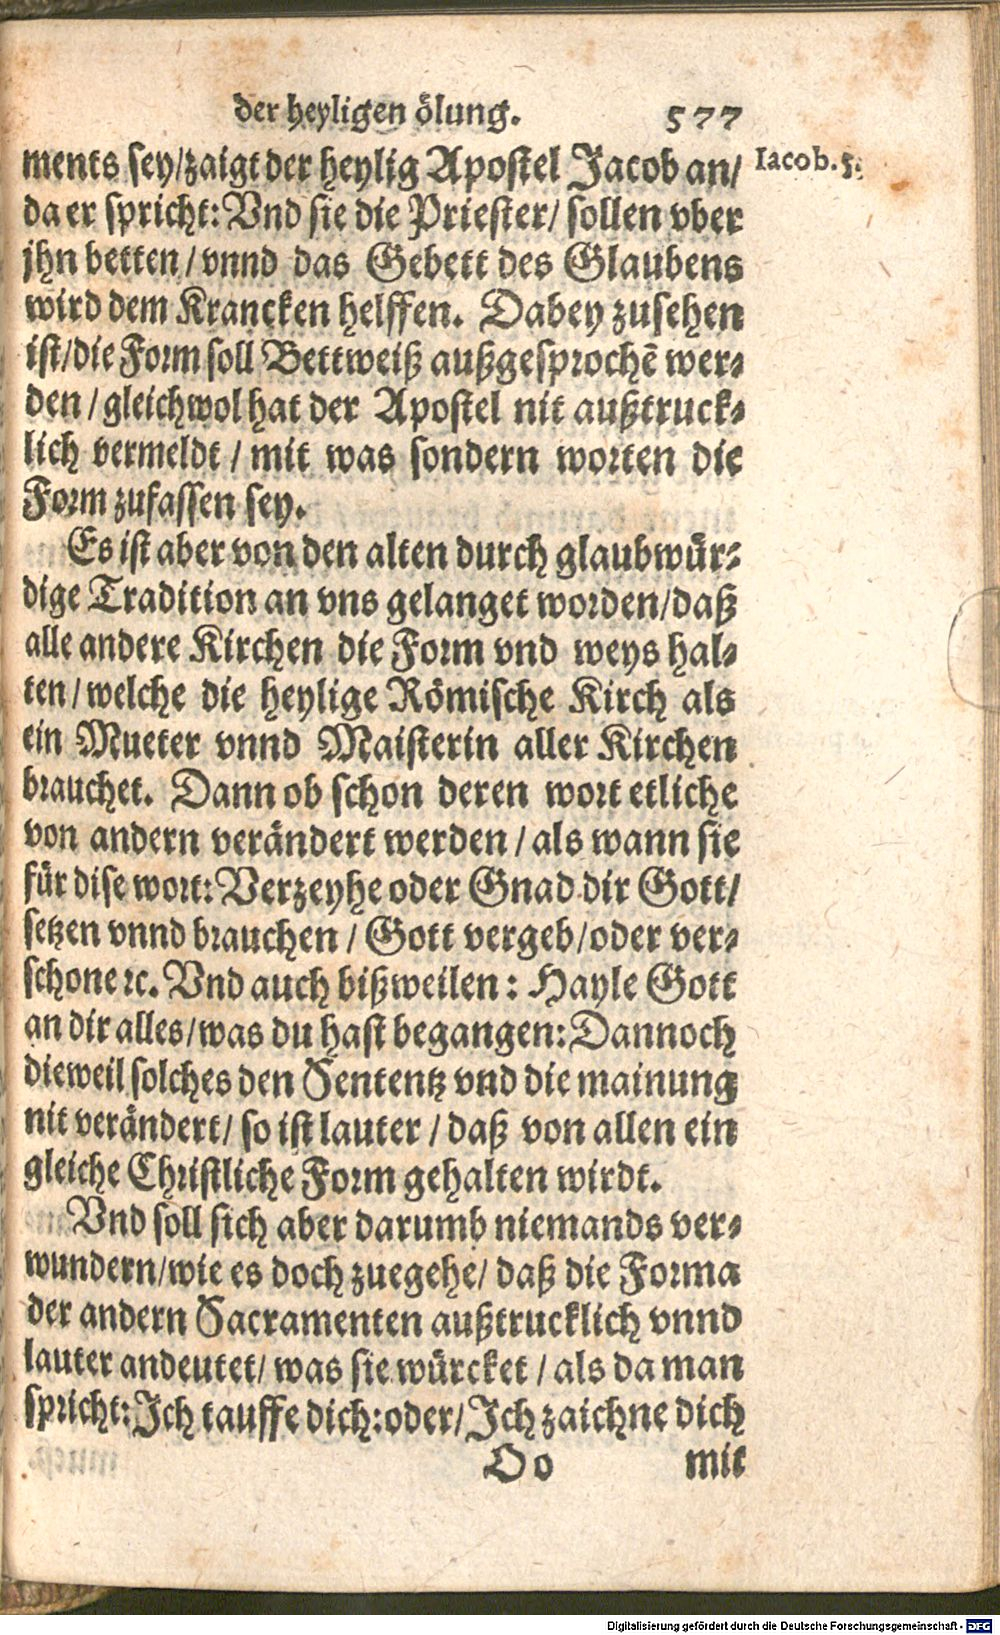 der heyligen ölung. 577
ments sey/zaigt der heylig Apostel Jacob an/ Iacob. 5.
da er spricht: Vnd sie die Priester/ sollen vber
jhn betten/ vnnd das Gebett des Glaubens
wird dem Krancken helffen. Dabey zusehen
ist/die Form soll Bettweiß außgesprochē wer⸗
den/ gleichwol hat der Apostel nit außtruck⸗
lich vermeldt/ mit was sondern worten die
Form zufassen sey.
Es ist aber von den alten durch glaubwür⸗
dige Tradition an vns gelanget worden/daß
alle andere Kirchen die Form vnd weys hal⸗
ten/ welche die heylige Römische Kirch als
ein Mueter vnnd Maisterin aller Kirchen
brauchet. Dann ob schon deren wort etliche
von andern verändert werden/ als wann sie
für dise wort: Verzeyhe oder Gnad dir Gott/
setzen vnnd brauchen/ Gott vergeb/oder ver⸗
schone ꝛc. Vnd auch bißweilen: Hayle Gott
an dir alles/was du hast begangen: Dannoch
dieweil solches den Sententz vnd die mainung
nit verändert/ so ist lauter/ daß von allen ein
gleiche Christliche Form gehalten wirdt.
Vnd soll sich aber darumb niemands ver⸗
wundern/wie es doch zuegehe/ daß die Forma
der andern Sacramenten außtrucklich vnnd
lauter andeutet/ was sie würcket/ als da man
spricht: Ich tauffe dich: oder/ Ich zaichne dich
Oo mit
Digitalisierung gefördert durch die Deutsche Forschungsgemeinschaft - DFG